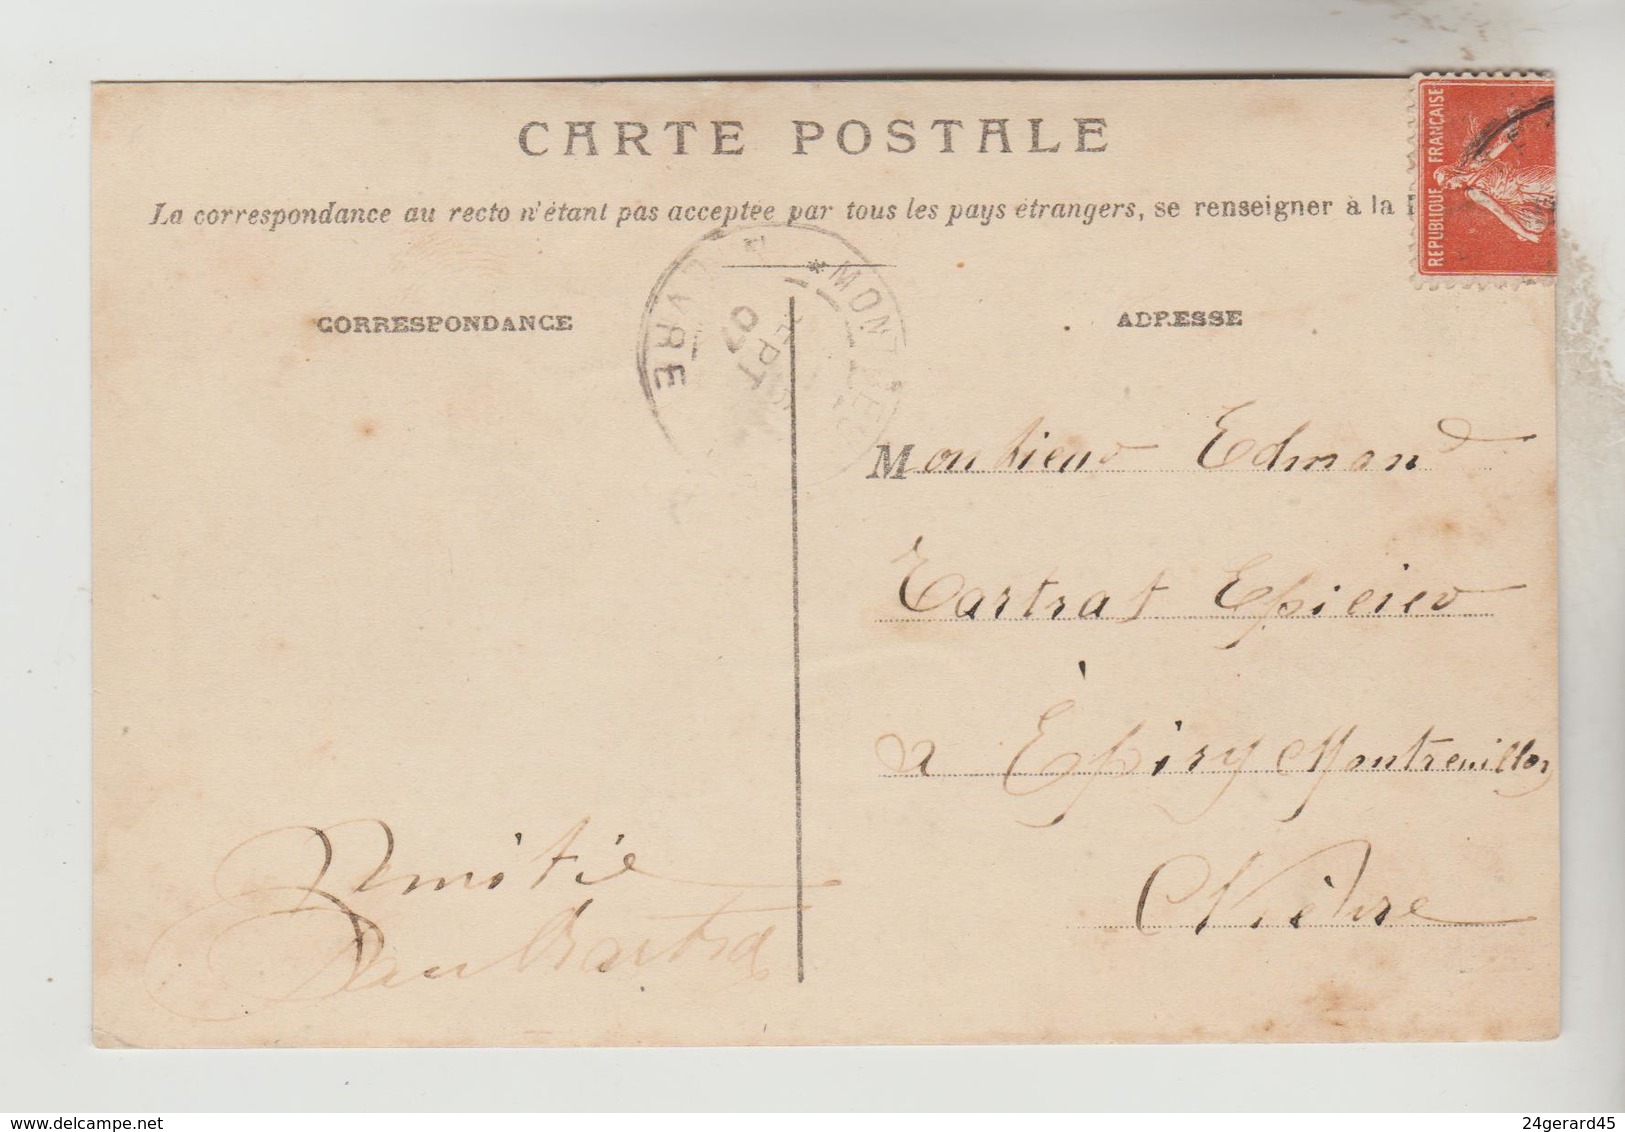 CARTE POSTALE
La correspondance au recto n'étant pas acceptée par tous les pays étrangers, se renseigner à la
REPUBLIQUE FRANÇAISE
CORRESPONDANCE
ADRESSE
Monsieur Edmond
Tartrat Epicier
a Épiry Montreuillon
Nièvre
Amitié
24gerard45